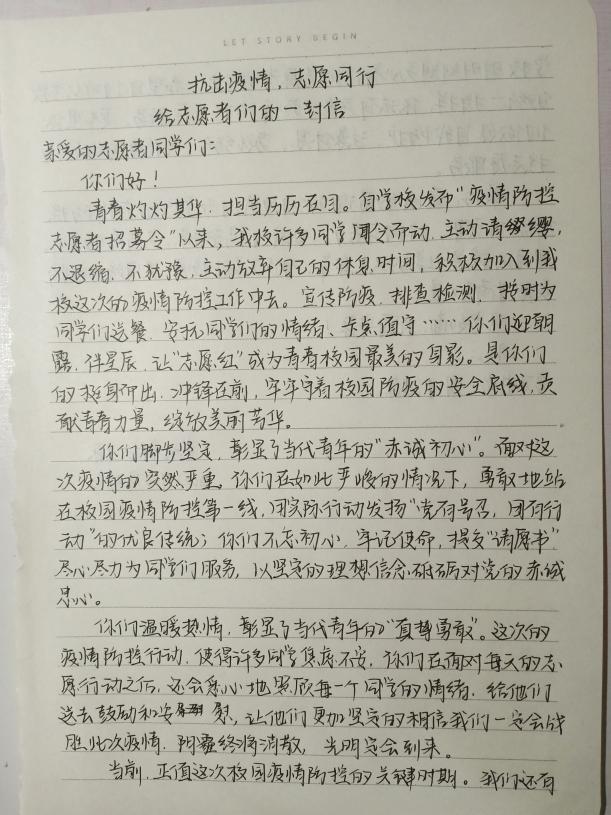 LET STORY BEGIN
抗击疫情，志愿同行
给志愿者们的一封信
亲爱的志愿者同学们：
你们好！
青春灼灼其华，担当历历在目。自学校发布“疫情防控
志愿者招募令”以来，我校许多同学闻令而动，主动请缨，
不退缩、不犹豫，主动放弃自己的休息时间，积极加入到我
校这次的疫情防控工作中去。宣传防疫，排查检测，按时为
同学们送餐，安抚同学们的情绪、卡点值守……你们迎朝
露，伴星辰，让“志愿红”成为青春校园最美的身影。是你们
的挺身而出，冲锋在前，牢牢守着校园防疫的安全底线，贡
献青春力量，绽放美丽芳华。
你们脚步坚定，彰显了当代青年的“赤诚初心”。面对这
次疫情的突然严重，你们在如此严峻的情况下，勇敢地站
在校园疫情防控第一线，用实际行动发扬“党有号召，团有行
动”的优良传统；你们不忘初心，牢记使命，提交“请愿书”，
尽心尽力为同学们服务，以坚定的理想信念砥砺对党的赤诚
忠心。
你们温暖热情，彰显了当代青年的“真挚勇敢”。这次的
疫情防控行动，使得许多同学焦虑不安，你们在面对每天的志
愿行动之后，还会悉心地照顾每一个同学的情绪，给他们
送去鼓励和安慰，让他们更加坚定的相信我们一定会战
胜此次疫情，阴霾终将消散，光明定会到来。
当前，正值这次校园疫情防控的关键时期。我们还有